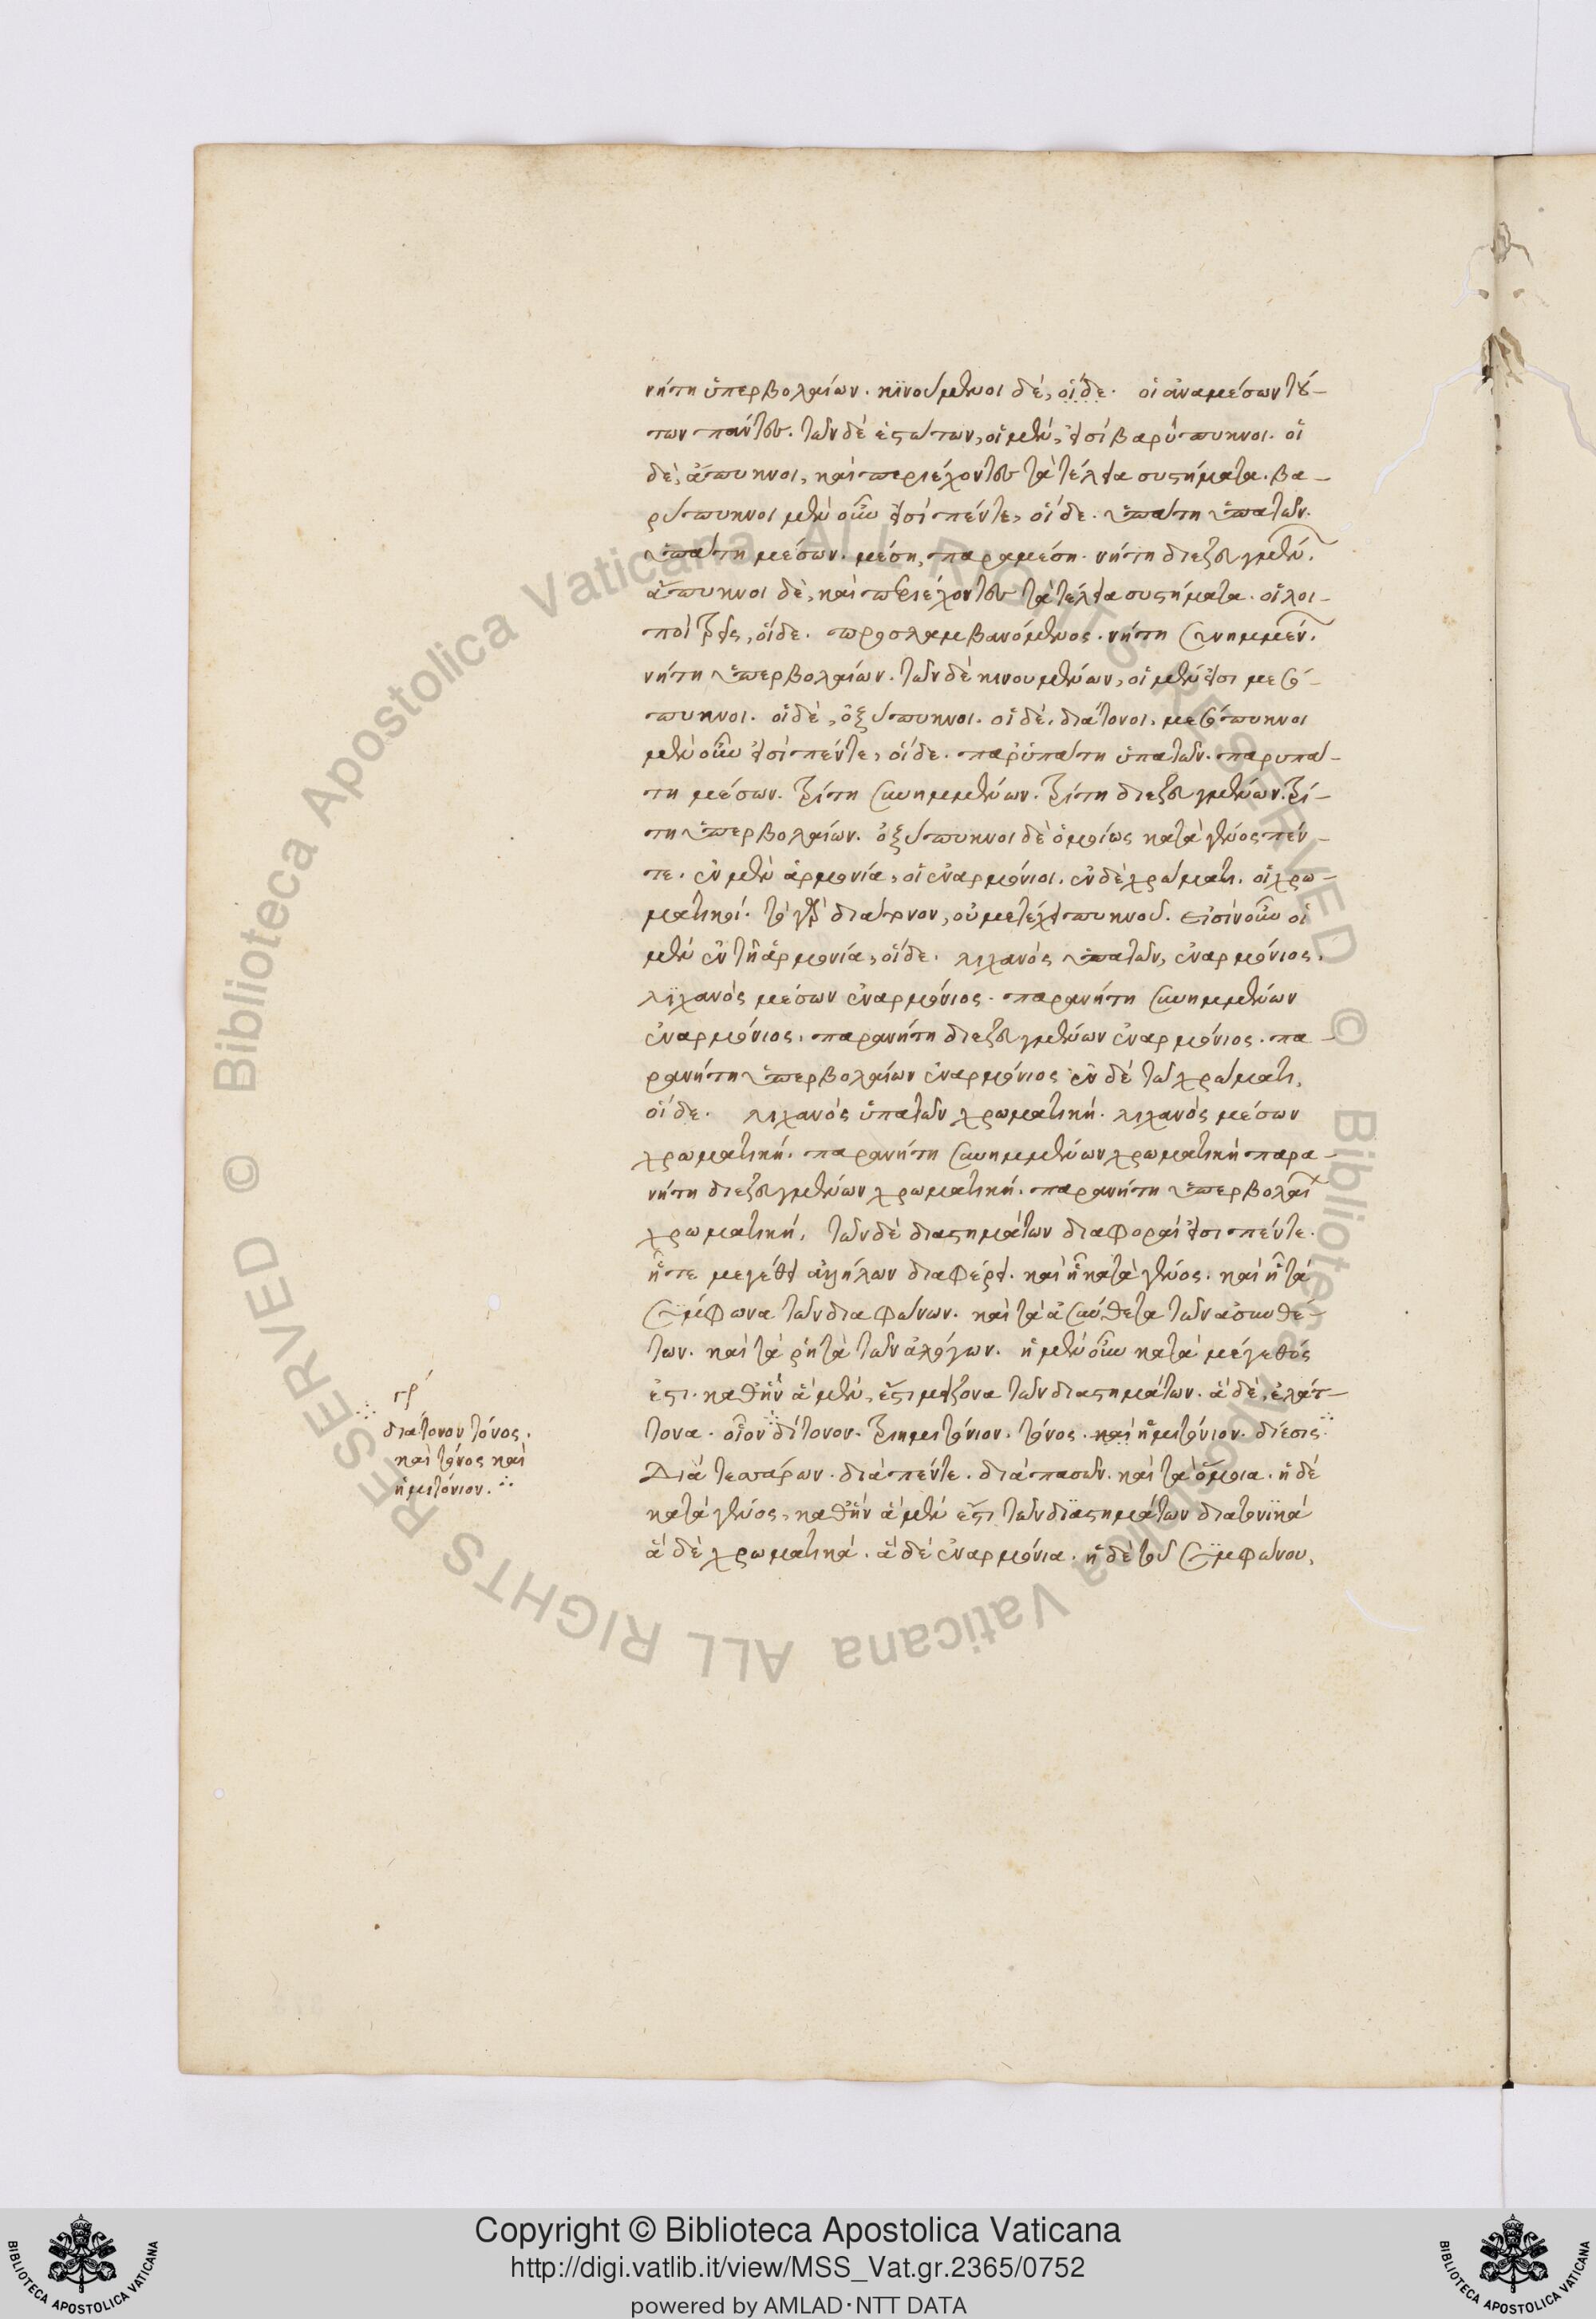 νήτη ὑπερβολαίων. κϊνούμενοι δὲ, οἵδε. οἱ ἀναμέσων τού-
των πάντες. τῶν δὲ ἑστώτων, οἱ μὲν, εἰσὶ βαρύπυκνοι. οἱ
δὲ, ἄπυκνοι, καὶ περιέχοντες τὰ τέλεια συστήματα. βα-
ρύπυκνοι μὲν οὖν εἰσὶ πέντε, οἵδε. ὑπάτη ὑπατῶν.
ὑπάτη μέσων. μέση, παραμέση. νήτη διεζευγμέν.
ἄπυκνοι δὲ, καὶ περιέχοντες τὰ τέλεια συστήματα. οἱ λοι-
ποὶ τρεῖς, οἵδε. προσλαμβανόμενος. νήτη συνημμέν.
νήτη ὑπερβολαίων. τῶν δὲ κινουμένων, οἱ μὲν εἰσι μεσό-
πυκνοι. οἱ δὲ, ὀξύπυκνοι. οἱ δὲ, διάτονοι. μεσόπυκνοι
μὲν οὖν εἰσὶ πέντε, οἵδε. παρὑπάτη ὑπατῶν. παρυπά-
τη μέσων. τρίτη συνημμένων. τρίτη διεζευγμένων. τρί-
τη ὑπερβολαίων. ὀξύπυκνοι δὲ ὁμοίως κατὰ γένος πέν-
τε. ἐν μὲν ἁρμονία, οἱ ἐναρμόνιοι. ἐν δὲ χρώματι. οἱ χρω-
ματικοί. τὸ γὰρ διάτονον, οὐ μετέχει πυκνοῦ. εἰσὶν οὖν οἱ
μὲν ἐν τῇ ἁρμονία, οἵδε. λιχανὸς ὑπατῶν, ἐναρμόνιος.
λϊχανὸς μέσων ἐναρμόνιος. παρανήτη συνημμένων
ἐναρμόνιος. παρανήτη διεζευγμένων ἐναρμόνιος. πα-
ρανήτη ὑπερβολαίων ἐναρμόνιος ἐν δὲ τῶ χρώματι,
οἵδε. λιχανὸς ὑπατῶν χρωματική. λιχανὸς μέσων
χρωματική. παρανήτη συνημμένων χρωματική παρα-
νήτη διεζευγμένων χρωματική. παρανήτη ὑπερβολαί
χρωματική, τῶν δὲ διαστημάτων διαφοραί εἰσι πέντε.
ἧ τε μεγέθει ἀλλήλων διαφέρει. καὶ ἧ κατὰ γένος. καὶ ἧ τὰ
σύμφωνα τῶν διαφώνων. καὶ τὰ ἀσύνθετα τῶν ἀσυνθέ-
των. καὶ τὰ ῥητὰ τῶν ἀλόγων. ἡ μὲν οὖν κατὰ μέγεθός
ἐστι. καθ' ἣν ἃ μὲν, ἔστι μείζονα τῶν διαστημάτων. ἃ δὲ, ἐλάτ-
τονα. οἷον δίτονον. τριημιτόνιον. τόνος. καὶ ἡμιτόνιον. δίεσις.
γρ
διάτονον τόνος.
καὶ τόνος καὶ
ἡμιτόνιον.
Διὰ τεσσάρων. διὰ πέντε. διὰ πασῶν. καὶ τὰ ὅμοια. ἡ δὲ
κατὰ γένος, καθ' ἣν ἃ μὲν ἔστι τῶν δϊαστημάτων διατονϊκά
ἃ δὲ χρωματικά. ἃ δὲ ἐναρμόνια. ἡ δὲ τοῦ συμφώνου,
Copyright © Biblioteca Apostolica Vaticana
http://digi.vatlib.it/view/MSS_Vat.gr.2365/0752
powered by AMLAD·NTT DATA
BIBLIOTECA APOSTOLICA VATICANA
BIBLIOTECA APOSTOLICA VATICANA
© Biblioteca Apostolica Vaticana ALL RIGHTS RESERVED
© Biblioteca Apostolica Vaticana ALL RIGHTS RESERVED